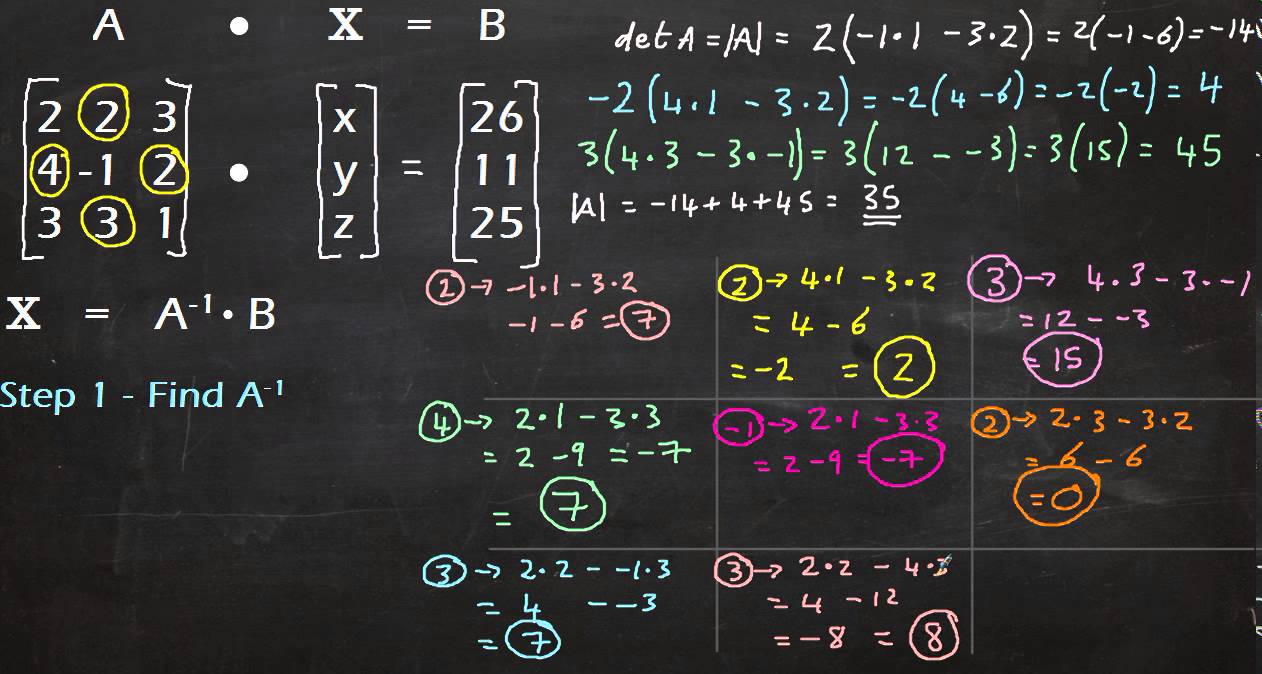 A • X = B
2 2 3
4 -1 2
3 3 1
•
x
y
z
=
26
11
25
X = A⁻¹ • B
Step 1 - Find A⁻¹
det A = |A| = 2(-1·1 - 3·2) = 2(-1-6) = -14
-2(4·1 - 3·2) = -2(4-6) = -2(-2) = 4
3(4·3 - 3·-1) = 3(12 - -3) = 3(15) = 45
|A| = -14+4+45 = 35
2 → -1·1 - 3·2
-1 - 6 = 7
2 → 4·1 - 3·2
= 4 - 6
= -2 = 2
3 → 4·3 - 3·-1
= 12 - -3
= 15
4 → 2·1 - 3·3
= 2 - 9 = -7
= 7
-1 → 2·1 - 3·3
= 2 - 9 = -7
2 → 2·3 - 3·2
= 6 - 6
= 0
3 → 2·2 - -1·3
= 4 - -3
= 7
3 → 2·2 - 4·3
= 4 - 12
= -8 = 8